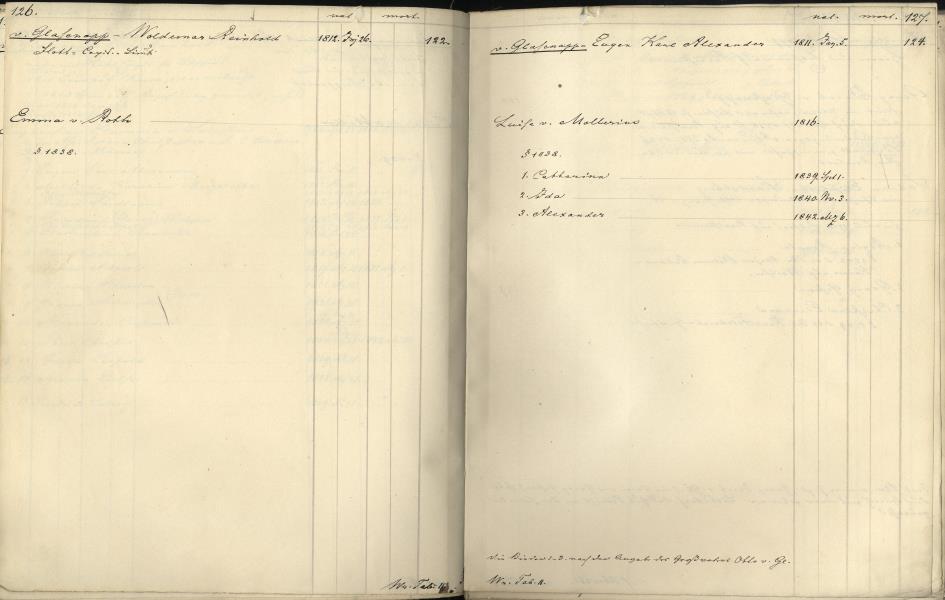 126.
nat. mort.
v. Glasenapp - Woldemar Reinhold 1812. 26. 122.
Flott- Capt.- Lieut.
Emma v. Roth
§ 1838.
Wr. Tab.
nat. mort. 127.
v. Glasenapp - Eugen Karl Alexander 1811. 5. 124.
Luise v. Mollerius 1816.
§ 1838.
1. Catharina 1839. Spt. 1.
2. Ida 1840. Nv. 3.
3. Alexander 1842. Mz 6.
Die Kinder 1-3. nach der Angabe des Großvaters Otto v. Gl.
Wr. Tab. 11.